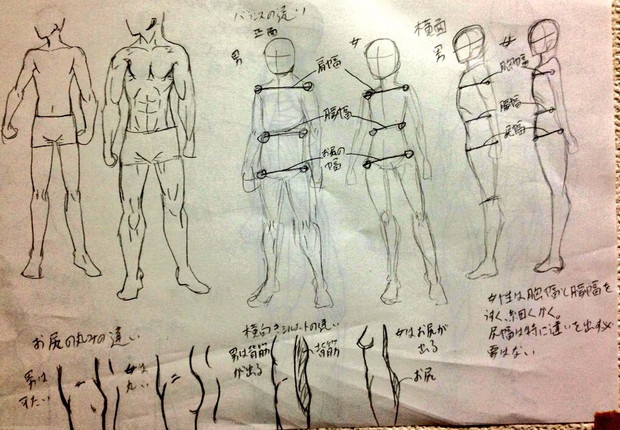 バランスの違い
正面
横面
男
女
男
女
肩幅
腰幅
お尻の
巾
胸幅
腰幅
尻幅
女性は胸幅と腰幅を
浅く、細くかく。
尻幅は特に違いを出す必
要はない
お尻の丸みの違い
男は
女は
丸い
横向きシルエットの違い
男は背筋
が出る
背筋
女はお尻が
出る
お尻